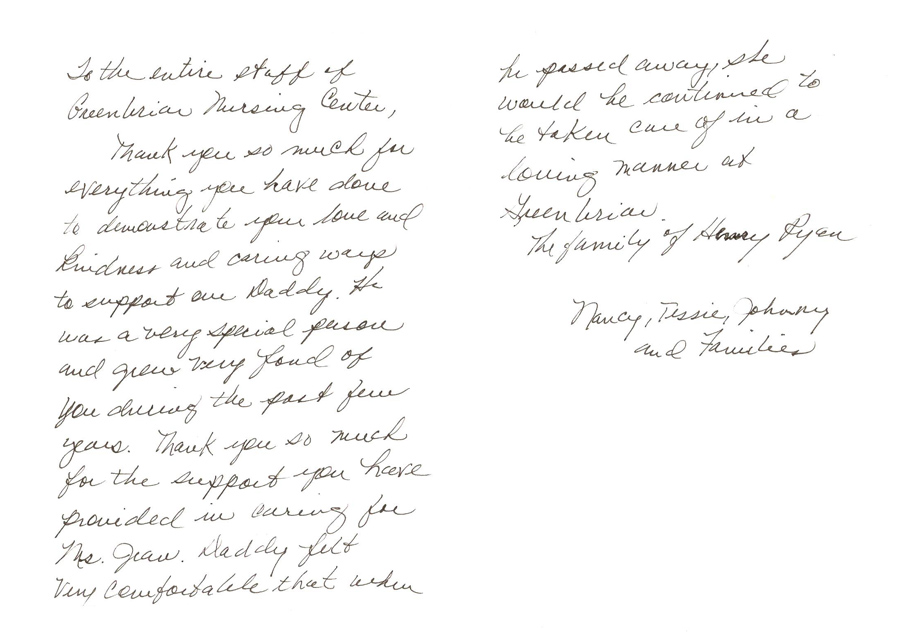 To the entire staff of
Greenbriar Nursing Center,
Thank you so much for
everything you have done
to demonstrate your love and
kindness and caring ways
to support our Daddy. He
was a very special person
and grew very fond of
you during the past few
years. Thank you so much
for the support you have
provided in caring for
Ms. Jean. Daddy felt
very comfortable that when
he passed away, she
would be continued to
be taken care of in a
loving manner at
Greenbriar.
The family of Henry Ryan
Nancy, Tessie, Johnny
and Families